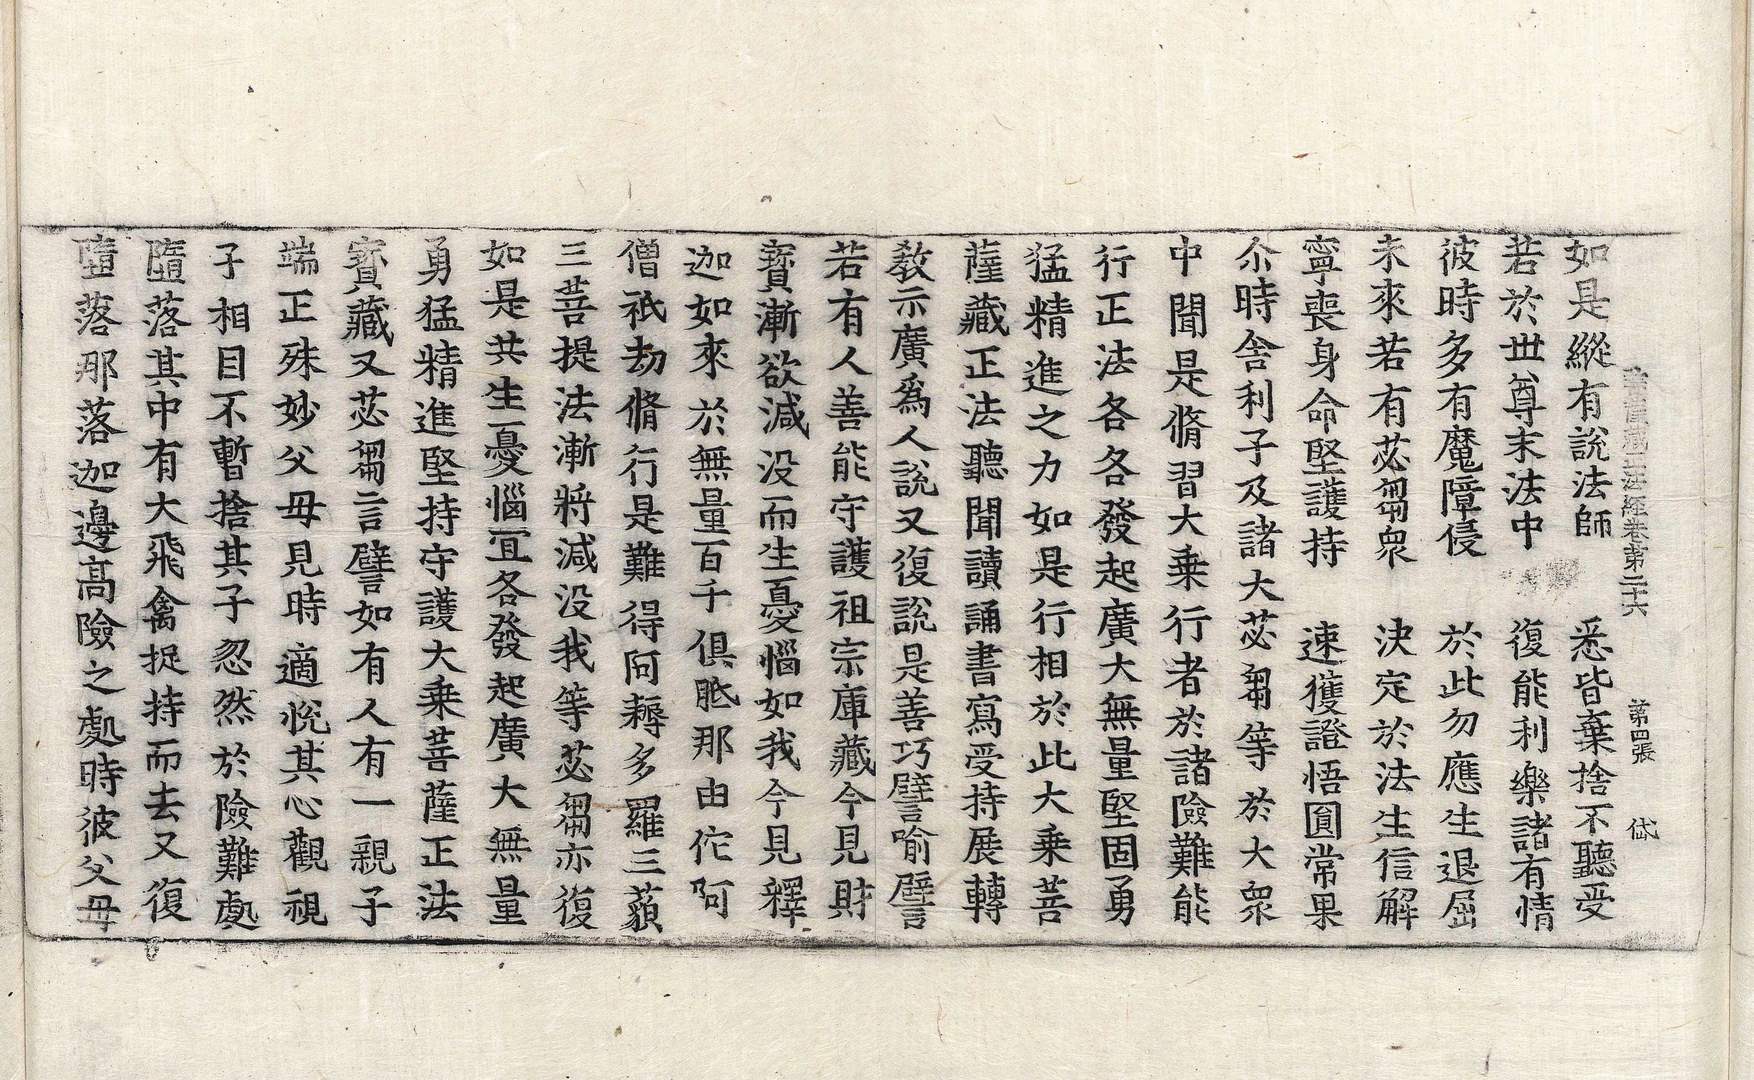 菩薩藏正法經卷第二十六　第四張　岱
如是縱有說法師　悉皆棄捨不聽受
若於世尊末法中　復能利樂諸有情
彼時多有魔障侵　於此勿應生退屈
未來若有苾芻衆　決定於法生信解
寧喪身命堅護持　速獲證悟圓常果
尒時舎利子及諸大苾芻等於大衆
中聞是脩習大乗行者於諸險難能
行正法各各發起廣大無量堅固勇
猛精進之力如是行相於此大乗菩
薩藏正法聽聞讀誦書寫受持展轉
教示廣爲人說又復說是善巧譬喻譬
若有人善能守護祖宗庫藏今見財
寶漸欲減没而生憂惱如我今見釋
迦如來於無量百千俱胝那由佗阿
僧祇劫脩行是難得阿耨多羅三藐
三菩提法漸將減没我等苾芻亦復
如是共生憂惱冝各發起廣大無量
勇猛精進堅持守護大乗菩薩正法
寳藏又苾芻言譬如有人有一親子
端正殊妙父母見時適悅其心觀視
子相目不暫捨其子忽然於險難處
墮落其中有大飛禽捉持而去又復
墮落那落迦邊髙險之處時彼父母